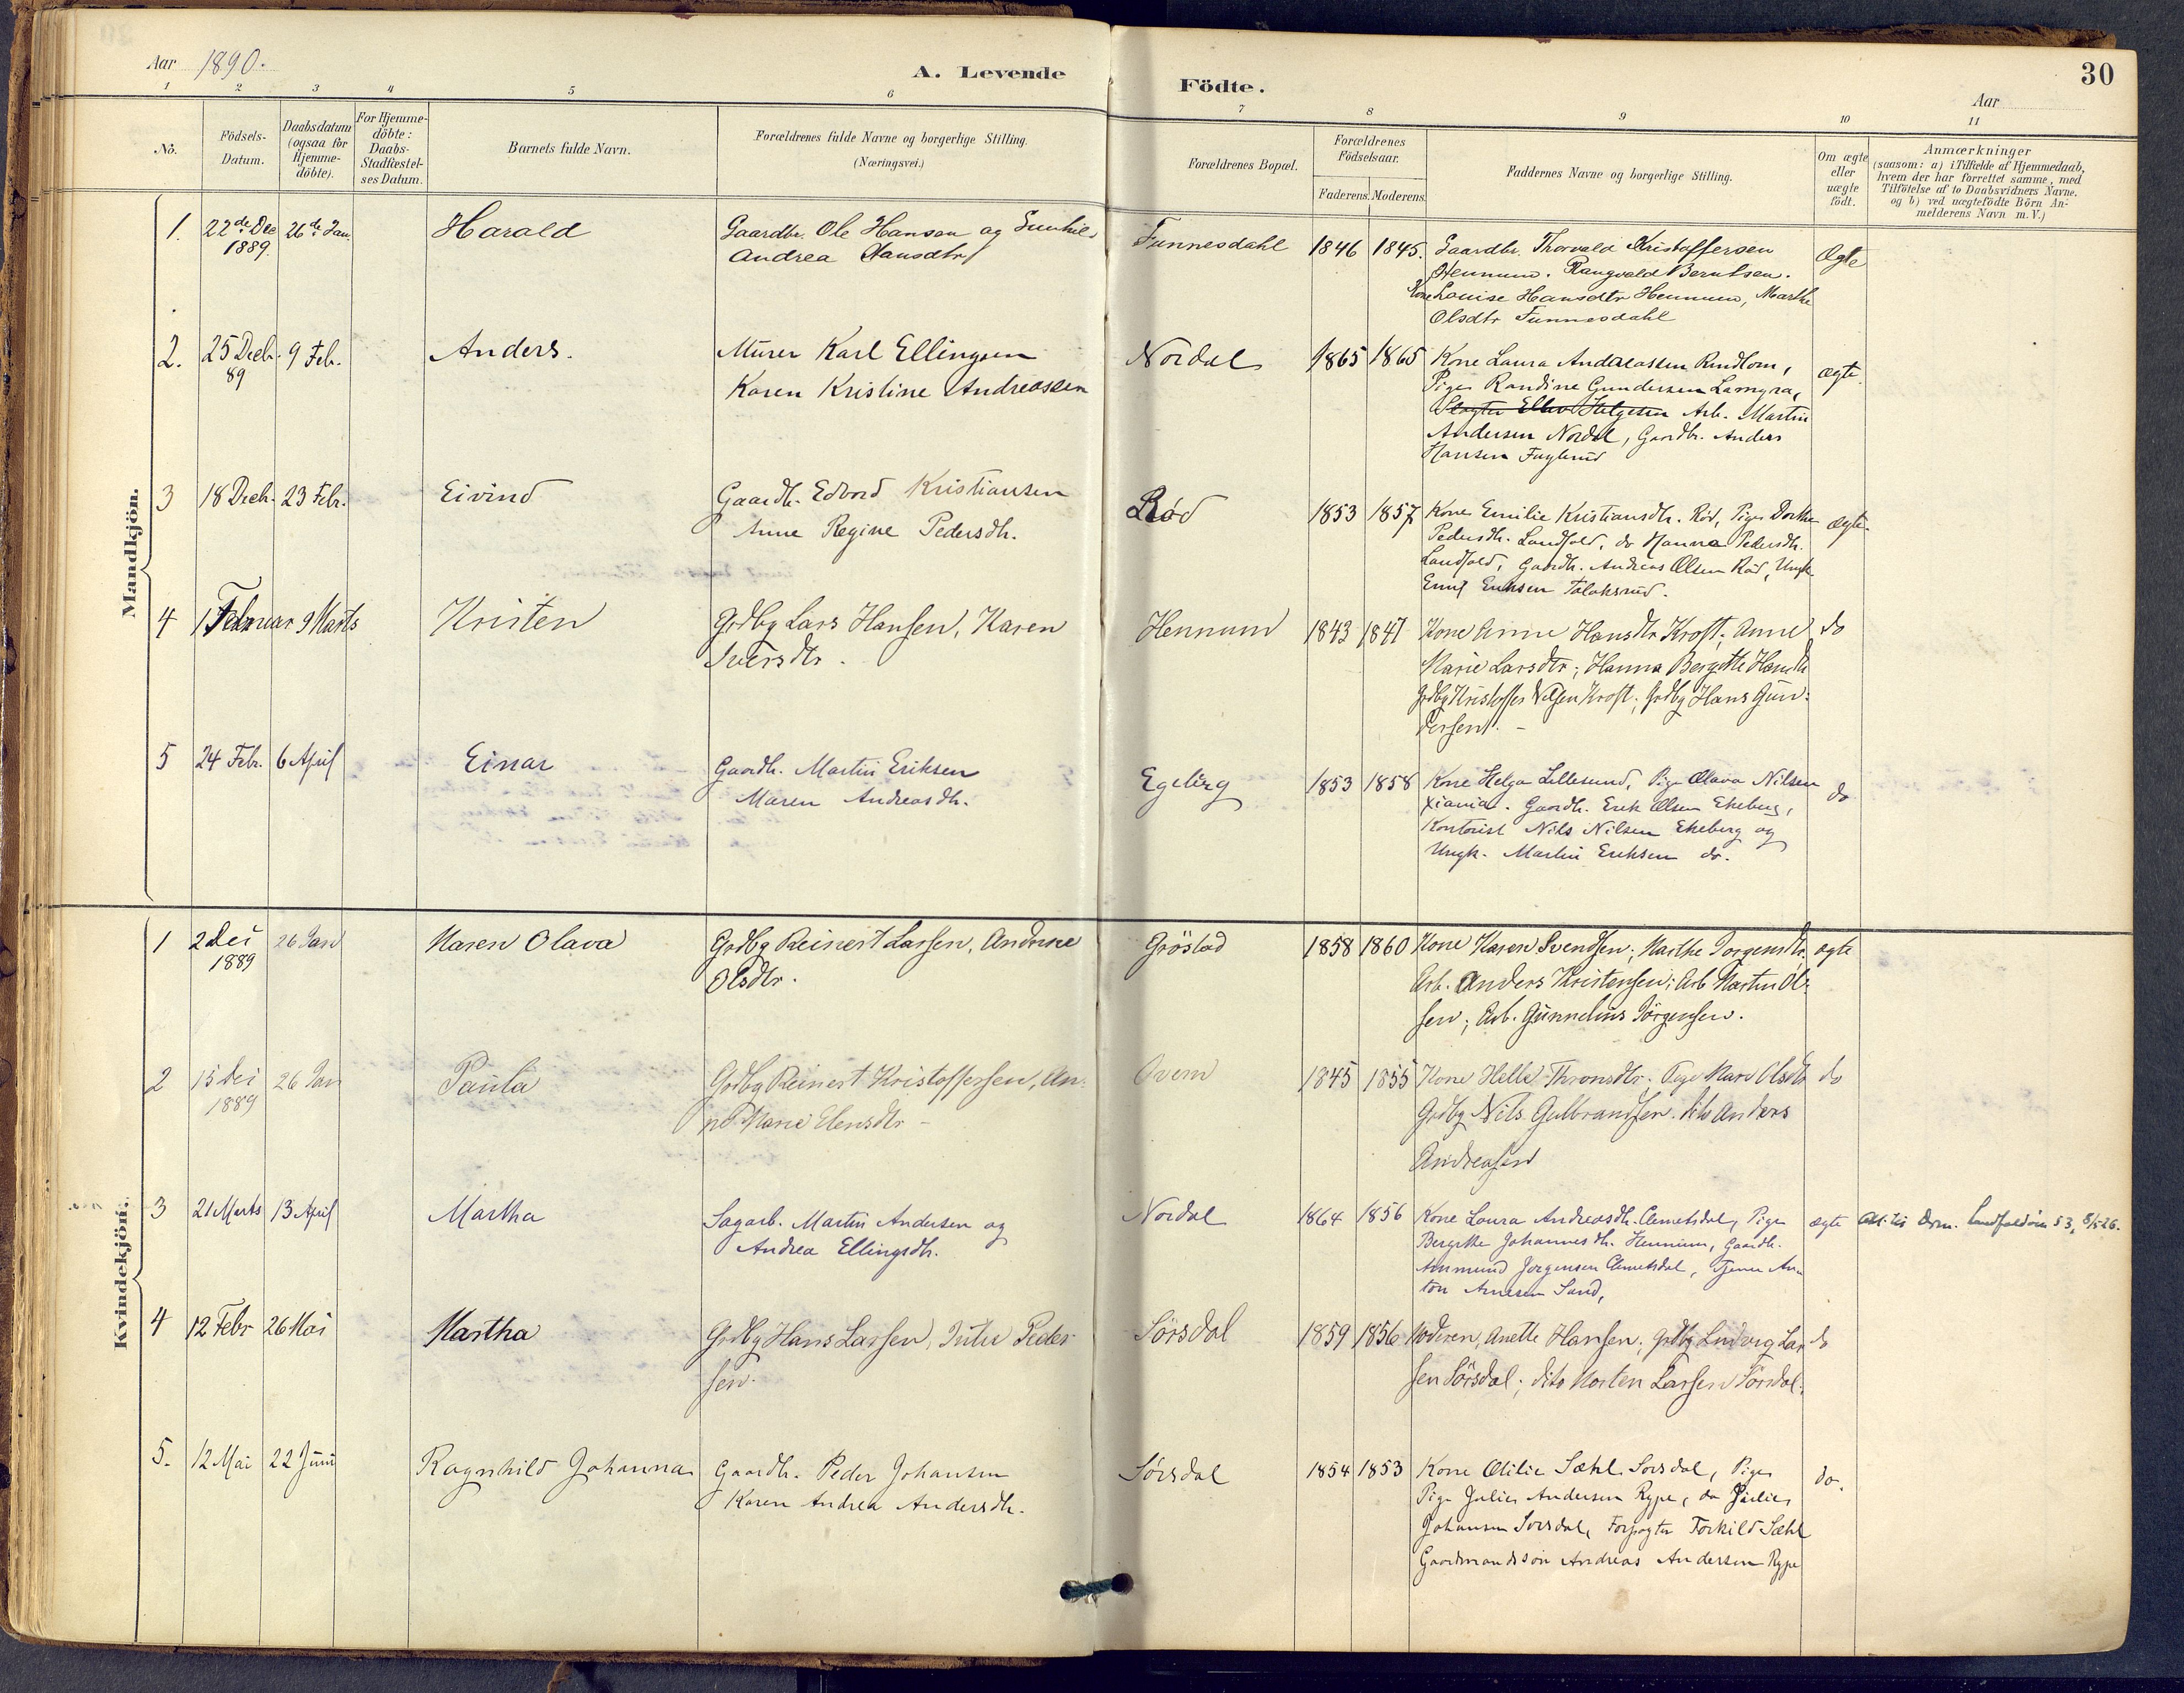 Aar 1890.
A. Levende Födte.
30
Aar
1 2 3 4 5 6 7 8 9 10 11
No.
Födsels-
Datum.
Daabsdatum
(ogsaa for
Hjemme-
döbte).
For Hjemme-
döbte:
Daabs-
Stadfæstel-
ses Datum.
Barnets fulde Navn.
Forældrenes fulde Navne og borgerlige Stilling.
(Næringsvei.)
Forældrenes Bopæl.
Forældrenes
Födselsaar.
Faderens. Moderens.
Faddernes Navne og borgerlige Stilling.
Om ægte
eller
uægte
født.
Anmærkninger
(saasom: a) i Tilfælde af Hjemmedaab,
hvem der har forrettet samme, med
Tilföielse af to Daabsvidners Navne.
og b) ved uægtefödte Börn An-
melderens Navn m. V.)
Mandkjön.
1. 22de Dec 26de Jan. Harald Gaardbr. Ole Hansen og Gunhild Funnesdahl 1846 1845. Gaardbr. Thorvald Kristoffersen Ægte
1889. Andrea Hansdtr
Hennum. Rangvald Berntsen.
Kone Louise Hansdtr Hennum, Marthe
Olsdtr Funnesdahl
2. 25 Decb. 9 Feb. Anders. Murer Karl Ellingsen Nordal 1865 1865 Kone Laura Andreassen Rundtom, ægte.
89 Karen Kristine Andreassen
Pige Randine Gundersen Lamyra,
Slagter Ellev Helgesen Arb. Martin
Andersen Nordal, Gaardbr. Anders
Hansen Fuglerud
3 18 Decb. 23 Febr. Eivind Gaardb. Edvard Kristiansen Rød 1853 1857 Kone Emilie Kristiansdtr. Röd, Pige Dorthe ægte.
Anne Regine Pedersdtr.
Pedersdtr. Landfald, do Hanna Pedersdtr.
Landfald, Gaardb. Andreas Olsen Röd, Ungk.
Eriksen
4 1 Februar 9 Marts Kristen Grdbg Lars Hansen, Karen Hennum 1843 1847 Kone Anne Hansdtr Kroft; Anne do
Iversdtr.
Marie Larsdtr; Hanna Bergitte Hansdtr
Grdbg Kristoffer Nilsen Kroft; Grdbg Hans Gun-
dersen. -
5 24 Febr. 6 April Einar Gaardb. Martin Eriksen Egeberg 1853 1858 Kone Helga Lillesund, Pige Olava Nilsen do
Maren Andreasdtr.
Xiania. Gaardb. Erik Olsen Ekeberg,
Kontorist Nils Nilsen Ekeberg og
Ungk. Martin Eriksen do.
Kvindekjön.
1 2 Dei 26 Jan Maren Olava Grdbg Reinert Larsen, Andrine Gröstad 1858 1860 Kone Karen Svendsen; Marthe Jorgensdtr; ægte
1889 Olsdtr.
Arb. Anders Kristensen; Arb Martin Ol-
sen; Arb. Gunnelius Jörgensen.
2 15 Dei 26 Jan Paula Grdbg Reinert Kristoffersen, An- Overn 1845 1855 Kone Helle Thronsdtr. Pige Mare Olsdtr do
1889 ne Marie Elensdtr -
Grdbg Nils Gulbrandsen. dito Anders
Andreasen
3 21 Marts 13 April Martha Sagarb. Martin Andersen og Nordal 1864 1856 Kone Laura Andreasdtr. Clemetsdal, Pige ægte Att. til Drm. Landfaldöen 53, 8/5 26.
Andrea Ellingsdtr.
Bergitte Johannesdtr. Hennum, Gaardb.
Anmund Jorgensen Clemetsdal, Tjener An-
ton Arnesen Sand,
4 12 Febr 26 Mai Martha Grdbg Hans Larsen, Jutu Peder- Sörsdal 1859 1856 Moderen, Anette Hansen; Grdbg Ludvig Lar- do
sen.
sen Sörsdal; dito Morten Larsen Sörsdal.
5. 12 Mai 22 Juni Ragnhild Johanna Gaardb. Peder Johansen Sörsdal 1854 1853 Kone Otilie Sæhl Sorsdal, Pige do.
Karen Andrea Andersdtr.
Pige Julie Andersen Rype, do Julie
Johansen Sorsdal, Forpagter Torkild Sæhl
Gaardmandssön Andreas Andersen Rype